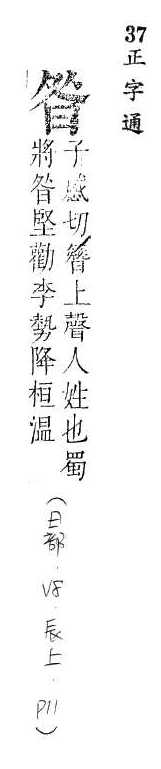 37 正字通
昝
子感切簪上聲人姓也蜀
將昝堅勸李勢降桓溫
(日部.V8.辰上.P11)